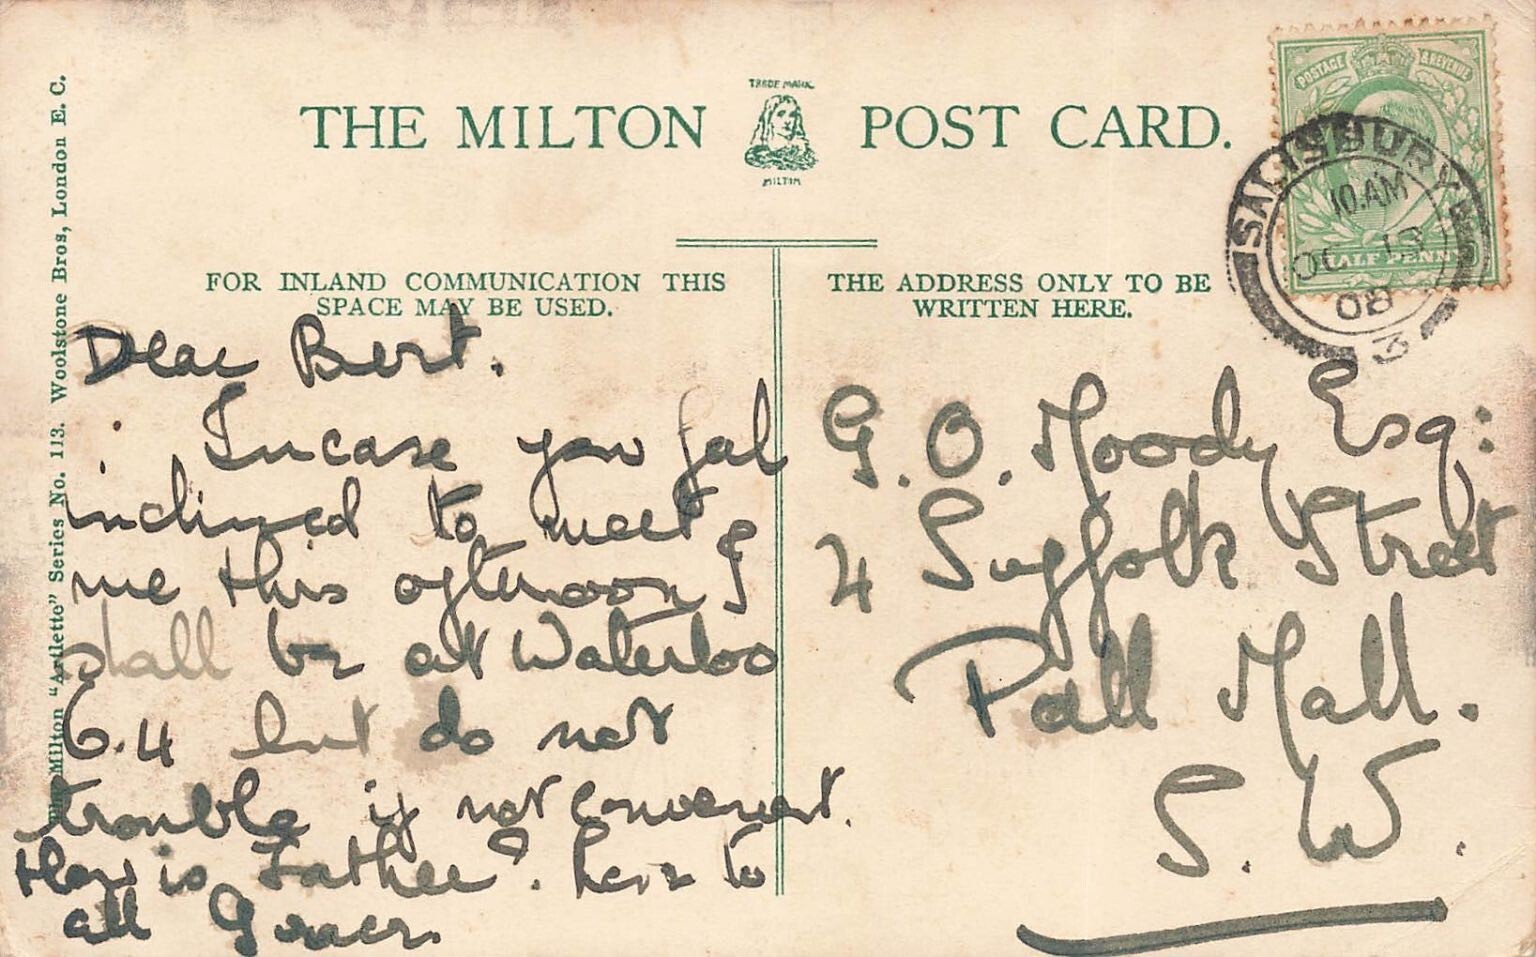 THE MILTON POST CARD.
TRADE MARK
MILTON
FOR INLAND COMMUNICATION THIS
SPACE MAY BE USED.
THE ADDRESS ONLY TO BE
WRITTEN HERE.
The Milton "Artlette" Series No. 113. Woolstone Bros, London E. C.
POSTAGE & REVENUE
HALF PENNY
SALISBURY
10.AM
OC 13
08
3
Dear Bert.
Incase you fal
inclined to meet
me this afternoon I
shall be at Waterloo
6.4 but do not
trouble if not convenient.
How is Father? Love to
all
G. O. Moody Esq:
4 Suffolk Street
Pall Mall.
S. W.